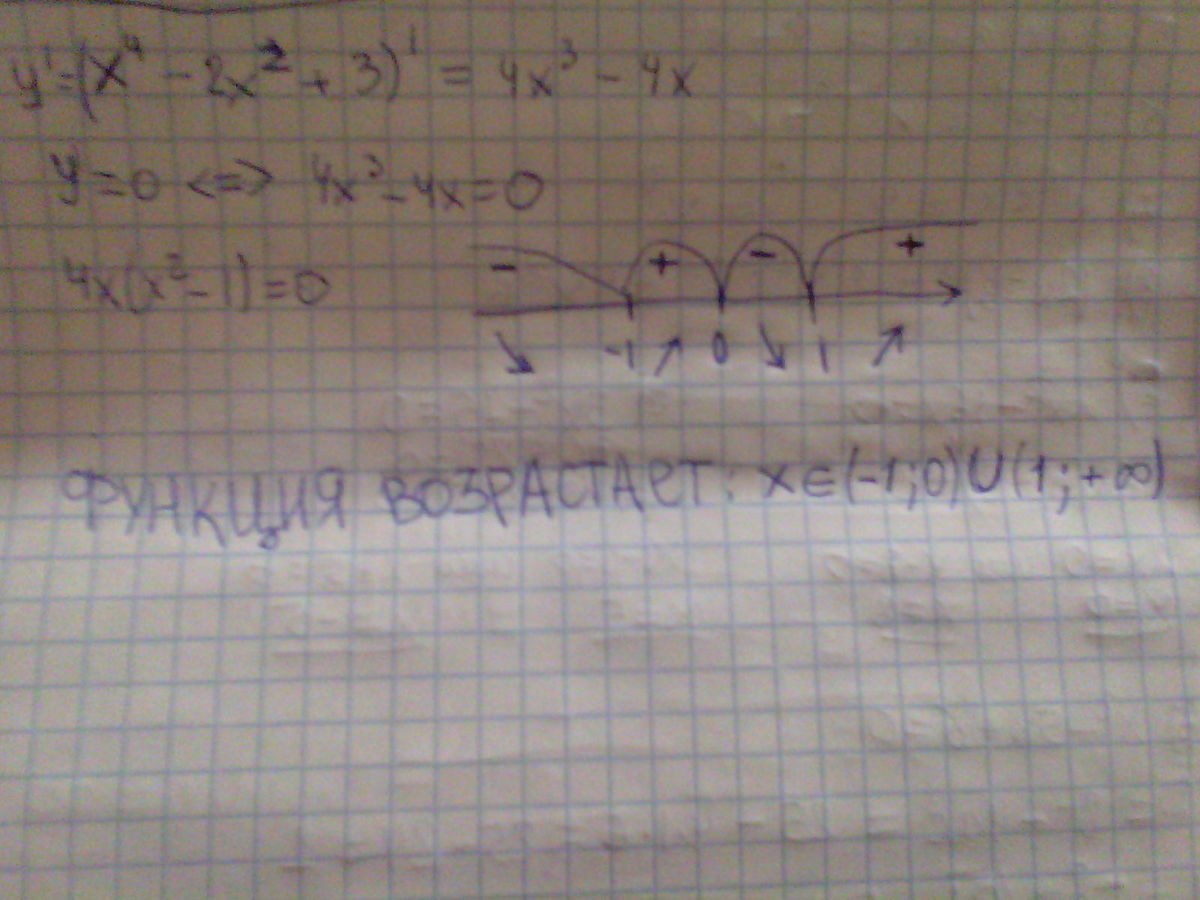 y'=(x⁴ - 2x² + 3)' = 4x³ - 4x
y=0 <=> 4x³-4x=0
4x(x²-1)=0
- + - +
↘ -1 ↗ 0 ↘ 1 ↗
ФУНКЦИЯ ВОЗРАСТАЕТ: x∈(-1;0)∪(1;+∞)